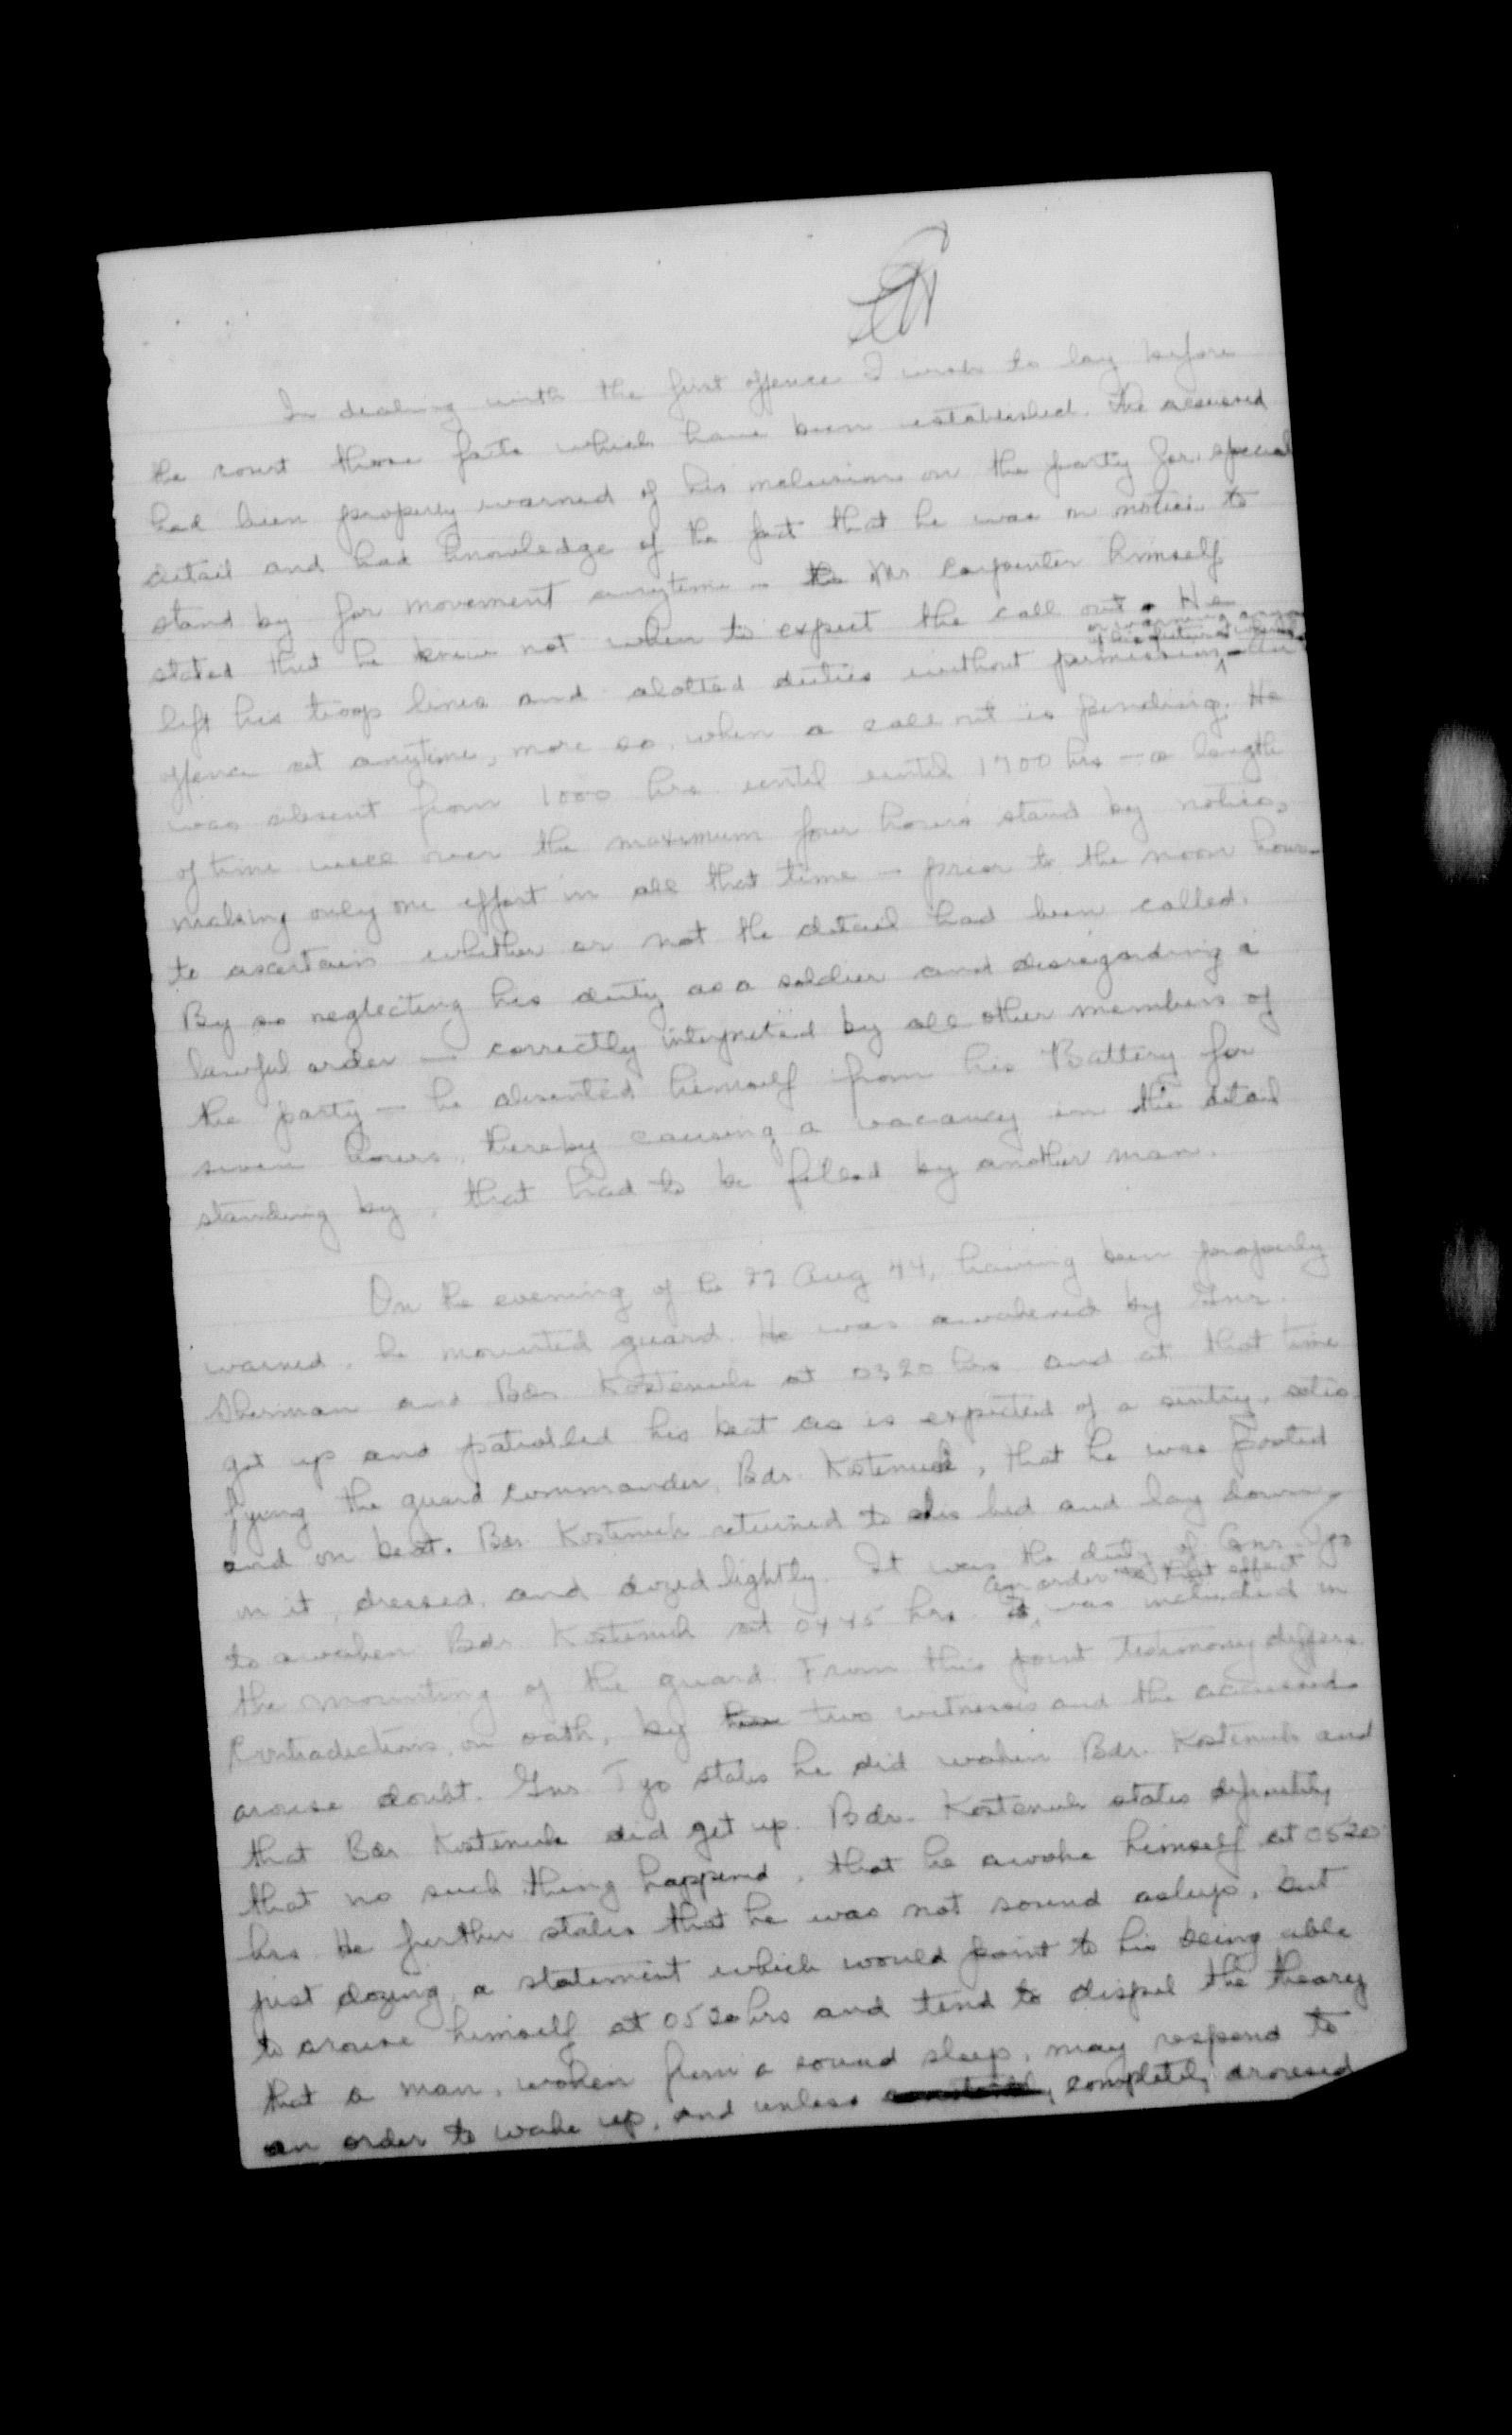 In dealing with the first offence I wish to lay before
the court those facts which have been established. The accused
had been properly warned of his inclusion on the party for special
detail and had knowledge of the fact that he was on notice to
stand by for movement anytime - Mr Carpenter himself
stated that he knew not when to expect the call out. He
or warning anyone
left his troop lines and alotted duties without permission, - an
offence at anytime, more so, when a call out is pending. He
was absent from 1000 hrs until until 1700 hrs - a length
of time well over the maximum four hours' stand by notice,
making only one effort in all that time - prior to the noon hour -
to ascertain whether or not the detail had been called.
By so neglecting his duty as a soldier and disregarding a
lawful order - correctly interpreted by all other members of
the party - he absented himself from his Battery for
seven hours, thereby causing a vacancy in the detail
standing by, that had to be filled by another man.
On the evening of the 27 Aug 44, having been properly
warned, he mounted guard. He was awakened by Gnr.
Sherman and Bdr Kostenuk at 0320 hrs and at that time
got up and patrolled his beat as is expected of a sentry, satis-
fying the guard commander, Bdr. Kostenuk, that he was posted
and on beat. Bdr Kostenuk returned to his bed and lay down
in it, dressed, and dozed lightly. It was the duty of Gnr. Tyo
an order to that effect
to awaken Bdr. Kostenuk at 0445 hrs. was included in
the mounting of the guard. From this point testimony differs.
Contradictions, on oath, by two witnesses and the accused
arouse doubt. Gnr. Tyo states he did waken Bdr. Kostenuk and
that Bdr Kostenuk did get up. Bdr. Kostenuk states definitely
that no such thing happend, that he awoke himself at 0520
hrs. He further states that he was not sound asleep, but
just dozing, a statement which would point to his being able
to arouse himself at 0520 hrs and tend to dispel the theory
that a man, woken from a sound sleep, may respond to
an order to wake up, and unless completely aroused